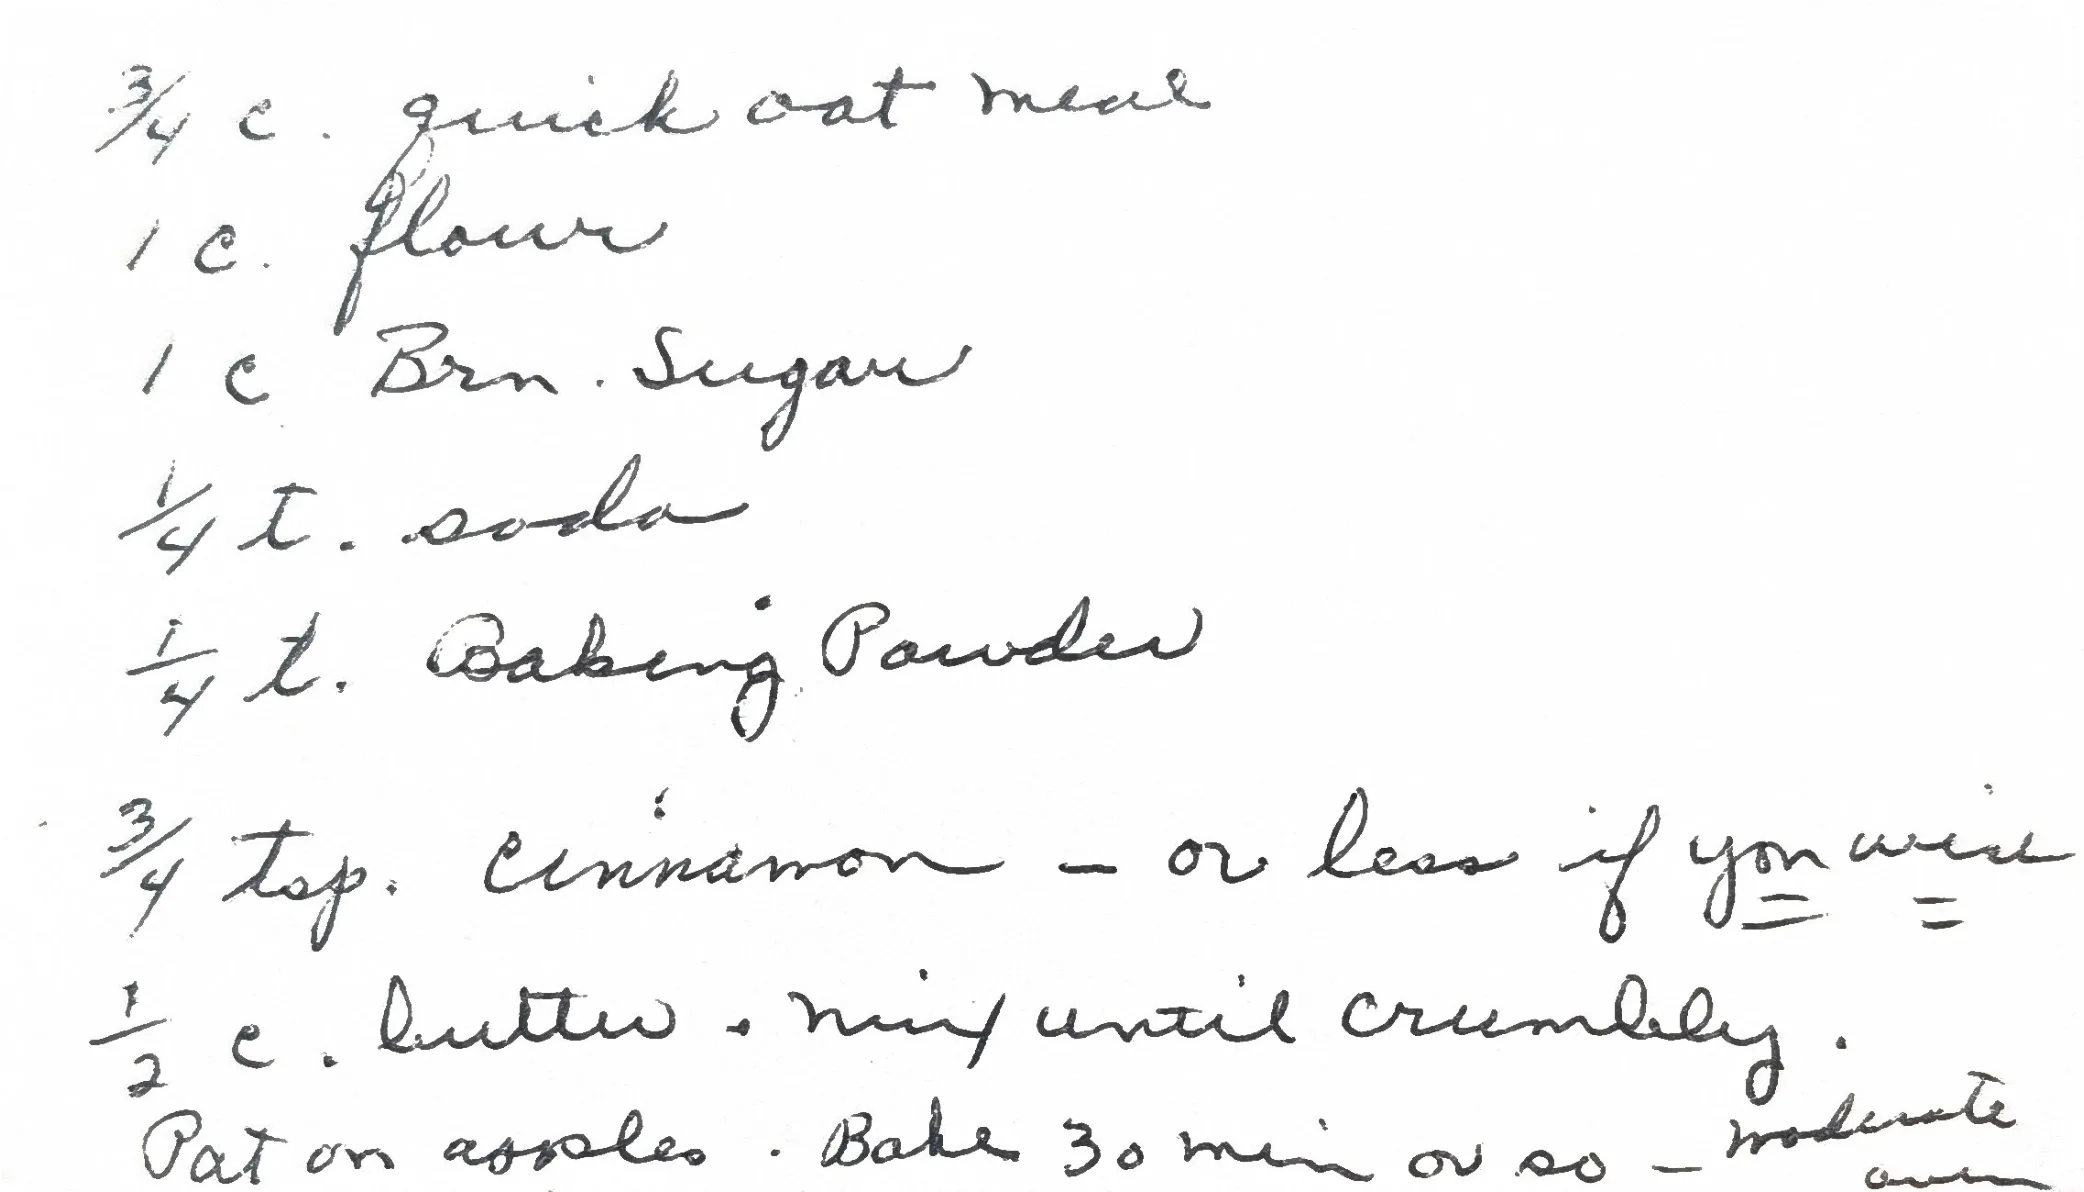 3/4 c. quick oat meal
1 c. flour
1 c Brn. Sugar
1/4 t. soda
1/4 t. Baking Powder
3/4 tsp. cinnamon - or less if you wish
1/2 c. butter. mix until crumbly.
Pat on apples. Bake 30 min or so - moderate
oven